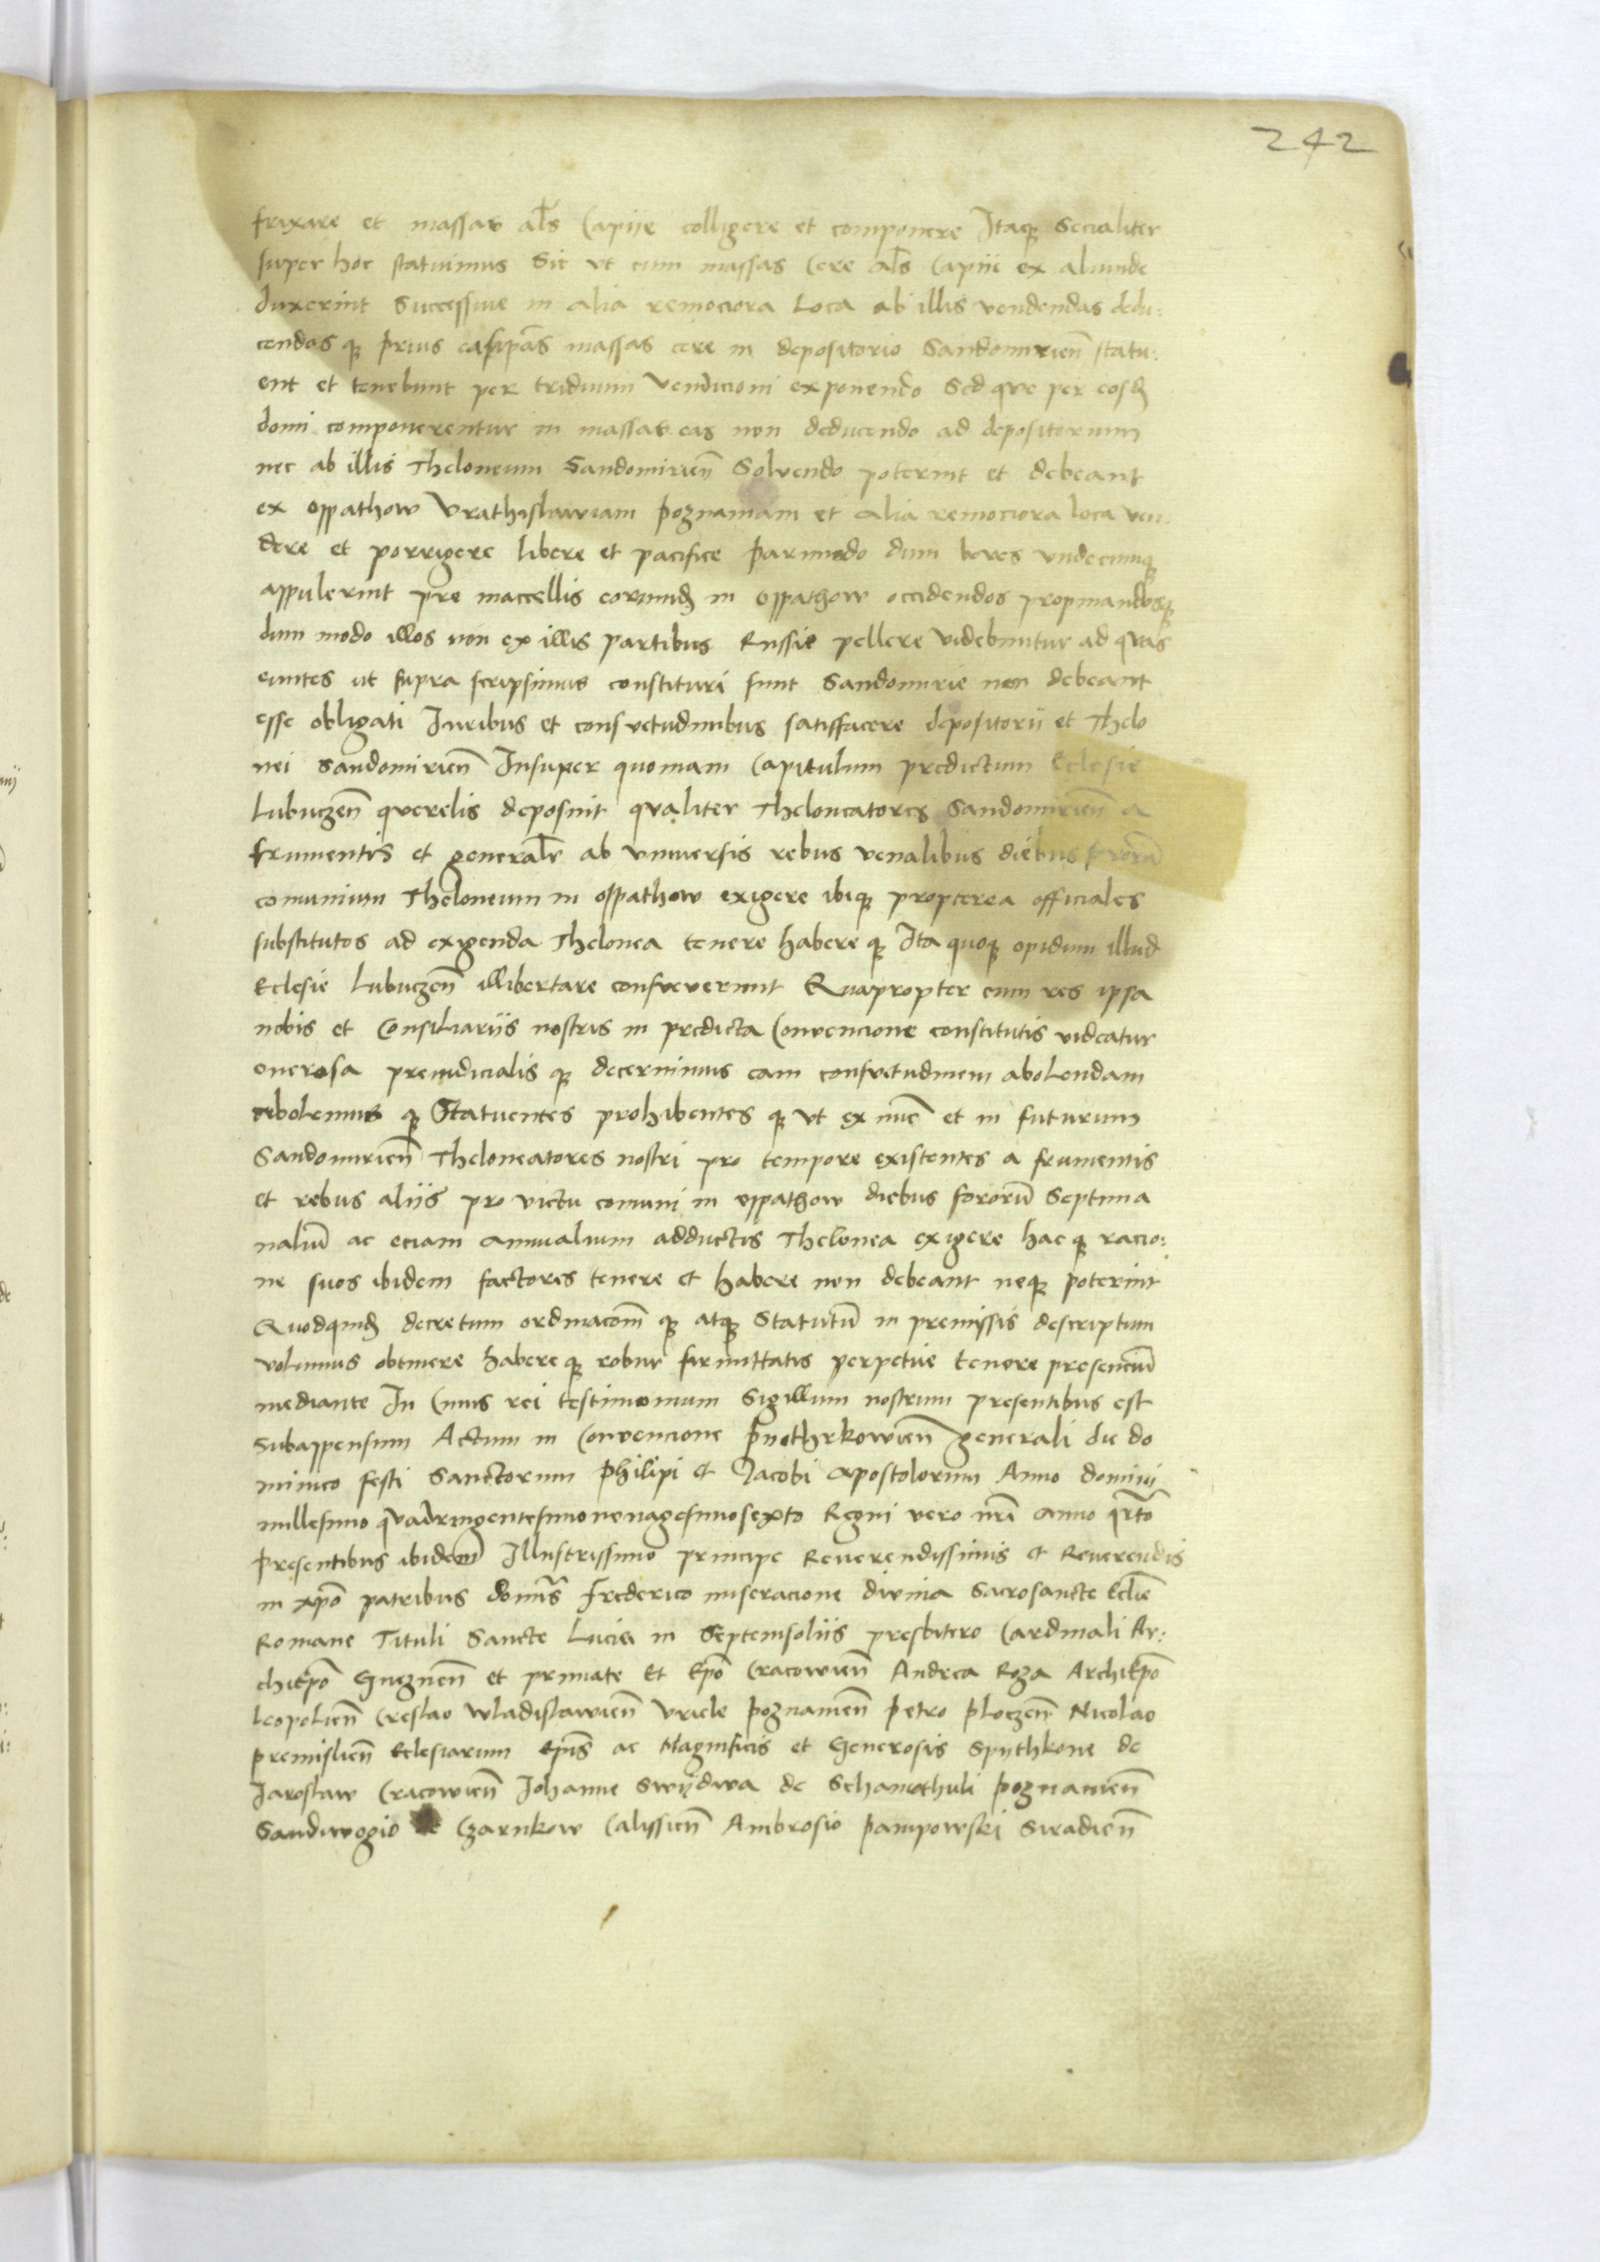 242
frixare et massas als Capije colligere et componere Itaque Secialiter
super hoc statuimus Sic ut cum massas Cere als Capije ex aliunde
duxerint Successive in alia remociora Loca ab illis vendendas dedu:
cendas que prius easipas massas cere in depositorio Sandomirien statu:
ent et tenebunt per triduum Vendicioni exponendo Sed que per eosd
domi componerentur in massas eas non deducendo ad depositorium
nec ab illis Theloneum Sandomirien Solvendo poterint et debeant
ex Oppathow Vrathislawiam Poznaniam et alia remociora loca ven
dere et porrigere libere et pacifice Parimodo dum boves undecunque
appulerint pre maccellis eorund in Oppathow occidendos propinandosque
dum modo illos non ex illis partibus Russie pellere videbuntur ad quas
euntes ut supra scripsimus constituri sunt Sandomirie non debeant
esse obligati Juribus et consuetudinibus satisfacere depositorii et Thelo
nei Sandomirien Insuper quoniam Capitulum predictum Eclesie
Lubuczen querelis deposuit qualiter Theloneatores Sandomirien a
frumentis et generale ab universis rebus venalibus diebus fororu
comunium Theloneum in Oppathow exigere ibique propterea officiales
substitutos ad exigenda Thelonea tenere habere que Ita quoque opidum illud
Eclesie Lubuczen illibertare consueverunt Quapropter cum res ipsa
nobis et Consiliariis nostris in predicta Convencione constitutis videatur
onerosa preiudicialis que decernimus eam consuetudinem abolendam
abolemus que Statuentes prohibentes que ut ex nuc et in futurum
Sandomirien Theloneatores nostri pro tempore existentes a frumentis
et rebus aliis pro victu comuni in Oppathow diebus fororu Septima
naliu ac eciam annualium adductis Thelonea exigere hac que racio:
ne suos ibidem factores tenere et habere non debeant neque poterint
Quodquid decretum ordinacom que atque Statutu in premissis descriptum
volumus obtinere habere que robur firmitatis perpetue tenore presenciu
mediante In Cuius rei testimonium Sigillum nostrum presentibus est
Subappensum Actum in Convencione Pyothrkowien generali die do
minico festi Sanctorum Philipi et Jacobi Apostolorum Anno domini
millesimo quadringentesimo nonagesimosexto Regni vero nri anno qrto
Presentibus ibidem Illustrissimo principe Reverendissimis et Reverendis
in xpo patribus domis Frederico miseracione divina Sacrosancte Eclie
Romane Tituli Sancte Lucie in Septemsoliis presbitero Cardinali Ar:
chiepo Gneznen et primate Et Epo Cracowien Andrea Roza Archiepo
Leopolien Creslao Wladislawien Vriele Poznanien Petro Ploczen Nicolao
Premislien Eclesiarum Epis ac Magnificis et Generosis Spythkone de
Jaroslaw Cracowien Johanne Swydwa de Schamothuli Poznanien
Sandivogio de Czarnkow Calissien Ambrosio Pampowski Siradien